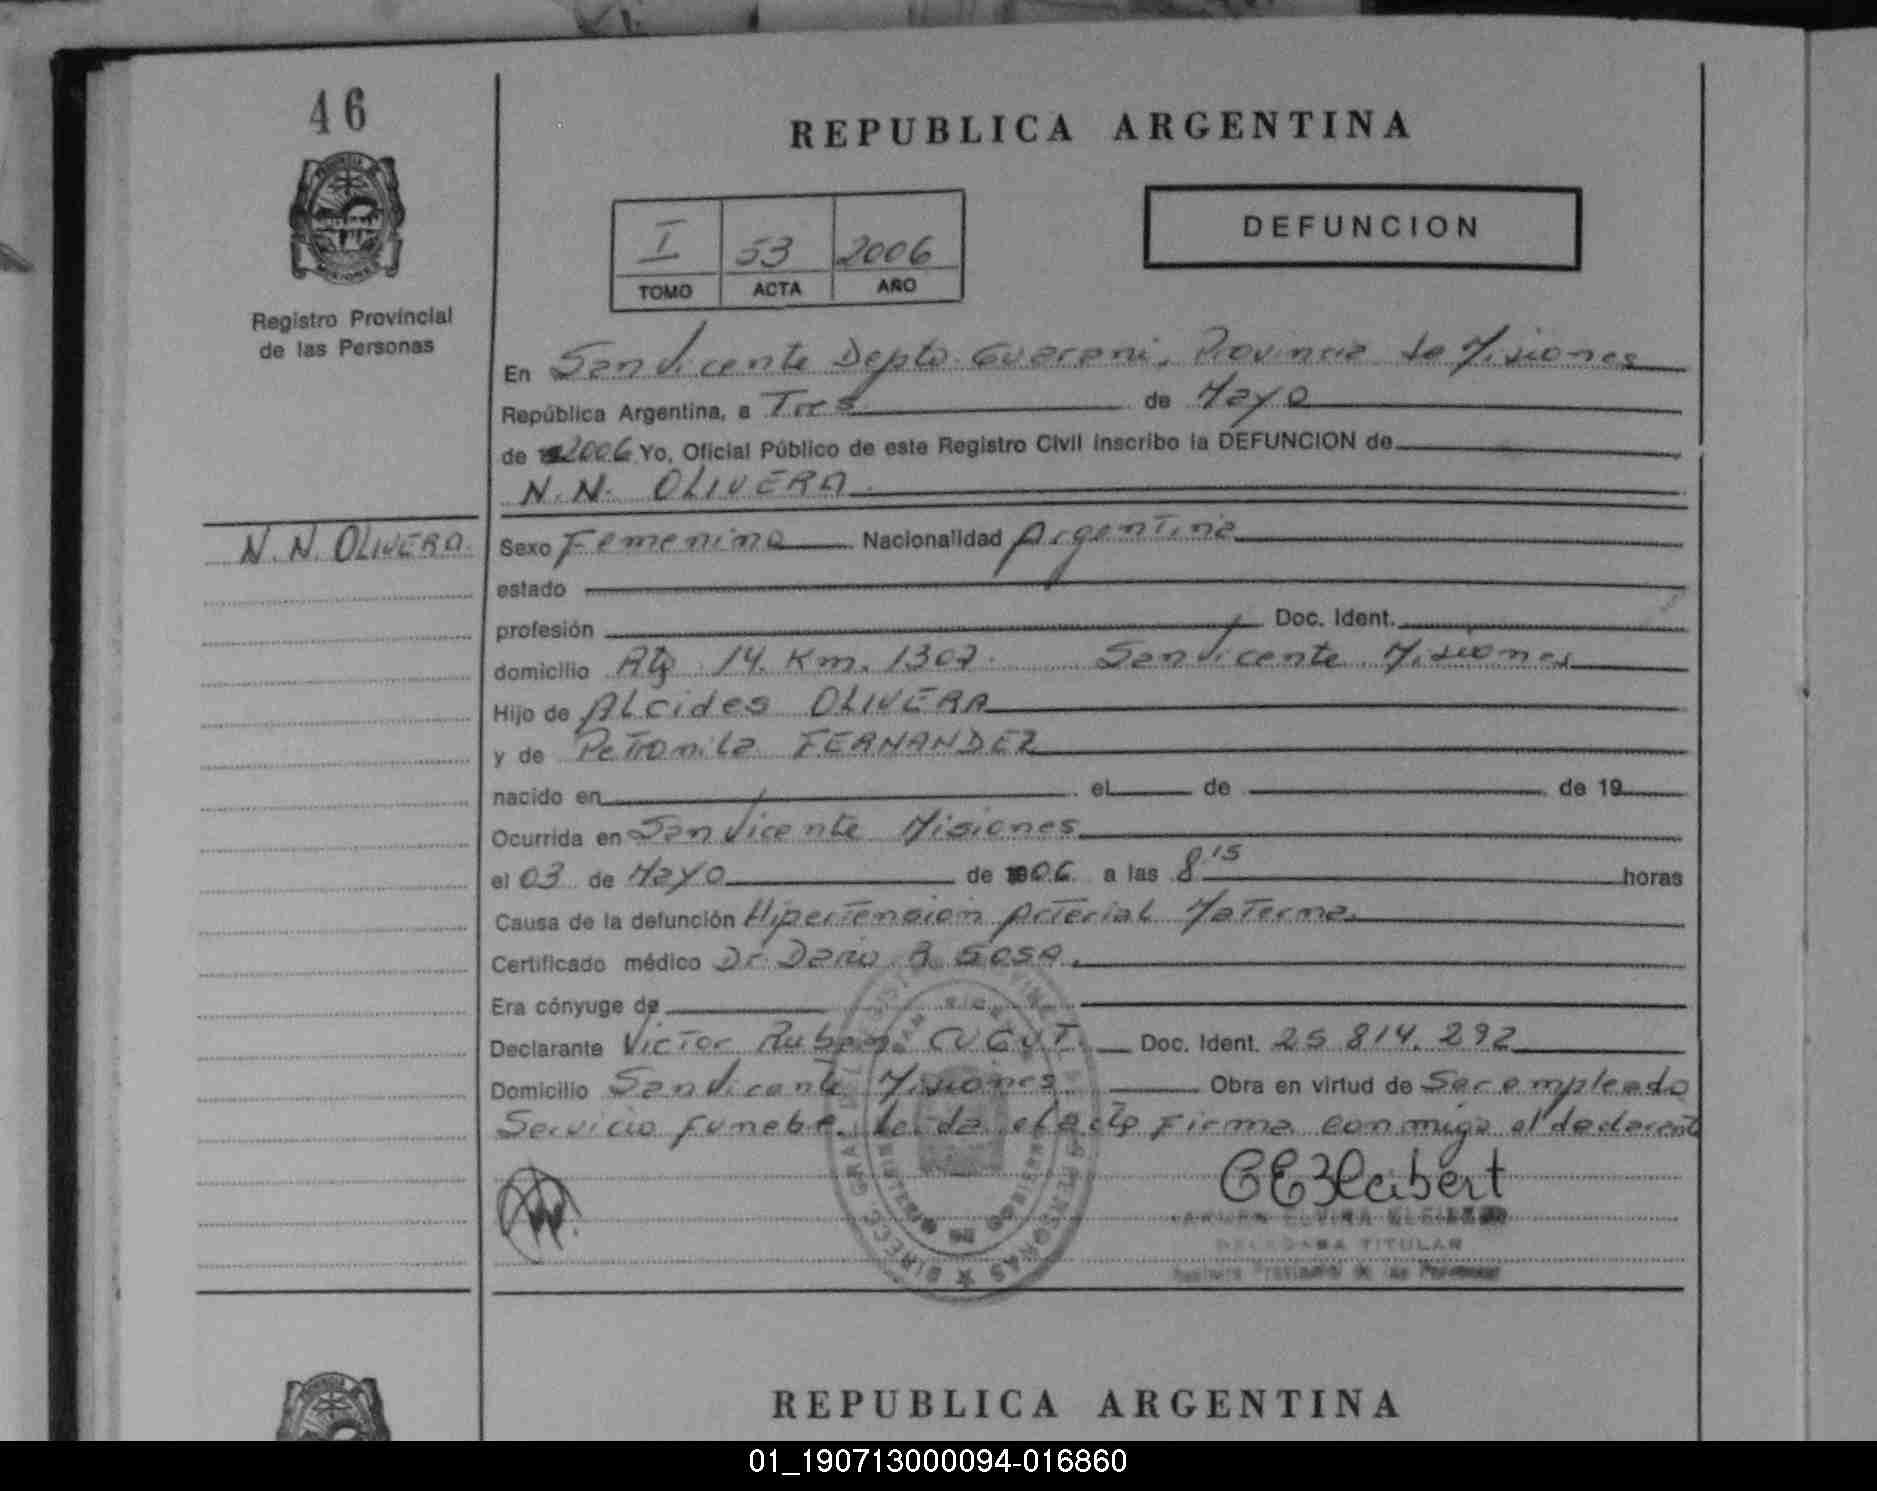 46
REPUBLICA ARGENTINA
DEFUNCION
I 53 2006
TOMO ACTA AÑO
Registro Provincial
de las Personas
En San Vicente Depto. Guarani, Provincia de Misiones
República Argentina, a Tres de Mayo
de 2006 Yo, Oficial Público de este Registro Civil inscribo la DEFUNCION de
N. N. OLIVERA
N. N. OLIVERA
Sexo Femenino Nacionalidad Argentina
estado
profesión Doc. Ident.
domicilio 14. Km. 1307. San Vicente Misiones
Hijo de Alcides OLIVERA
y de Petronila FERNANDEZ
nacido en el de de 19
Ocurrida en San Vicente Misiones
el 03 de Mayo de 06 a las 8.15 horas
Causa de la defunción Hipertension Arterial Materna.
Certificado médico Dr. Dario R. SOSA.
Era cónyuge de
Declarante Victor Ruben CUGUT. Doc. Ident. 25 814. 292
Domicilio San Vicente Misiones Obra en virtud de Ser empleado
Servicio funebre. Leida el acta Firma conmigo el declarante
CEKleibert
ELVIRA
TITULAR
Registro Provincial de las Personas
REPUBLICA ARGENTINA
01_190713000094-016860